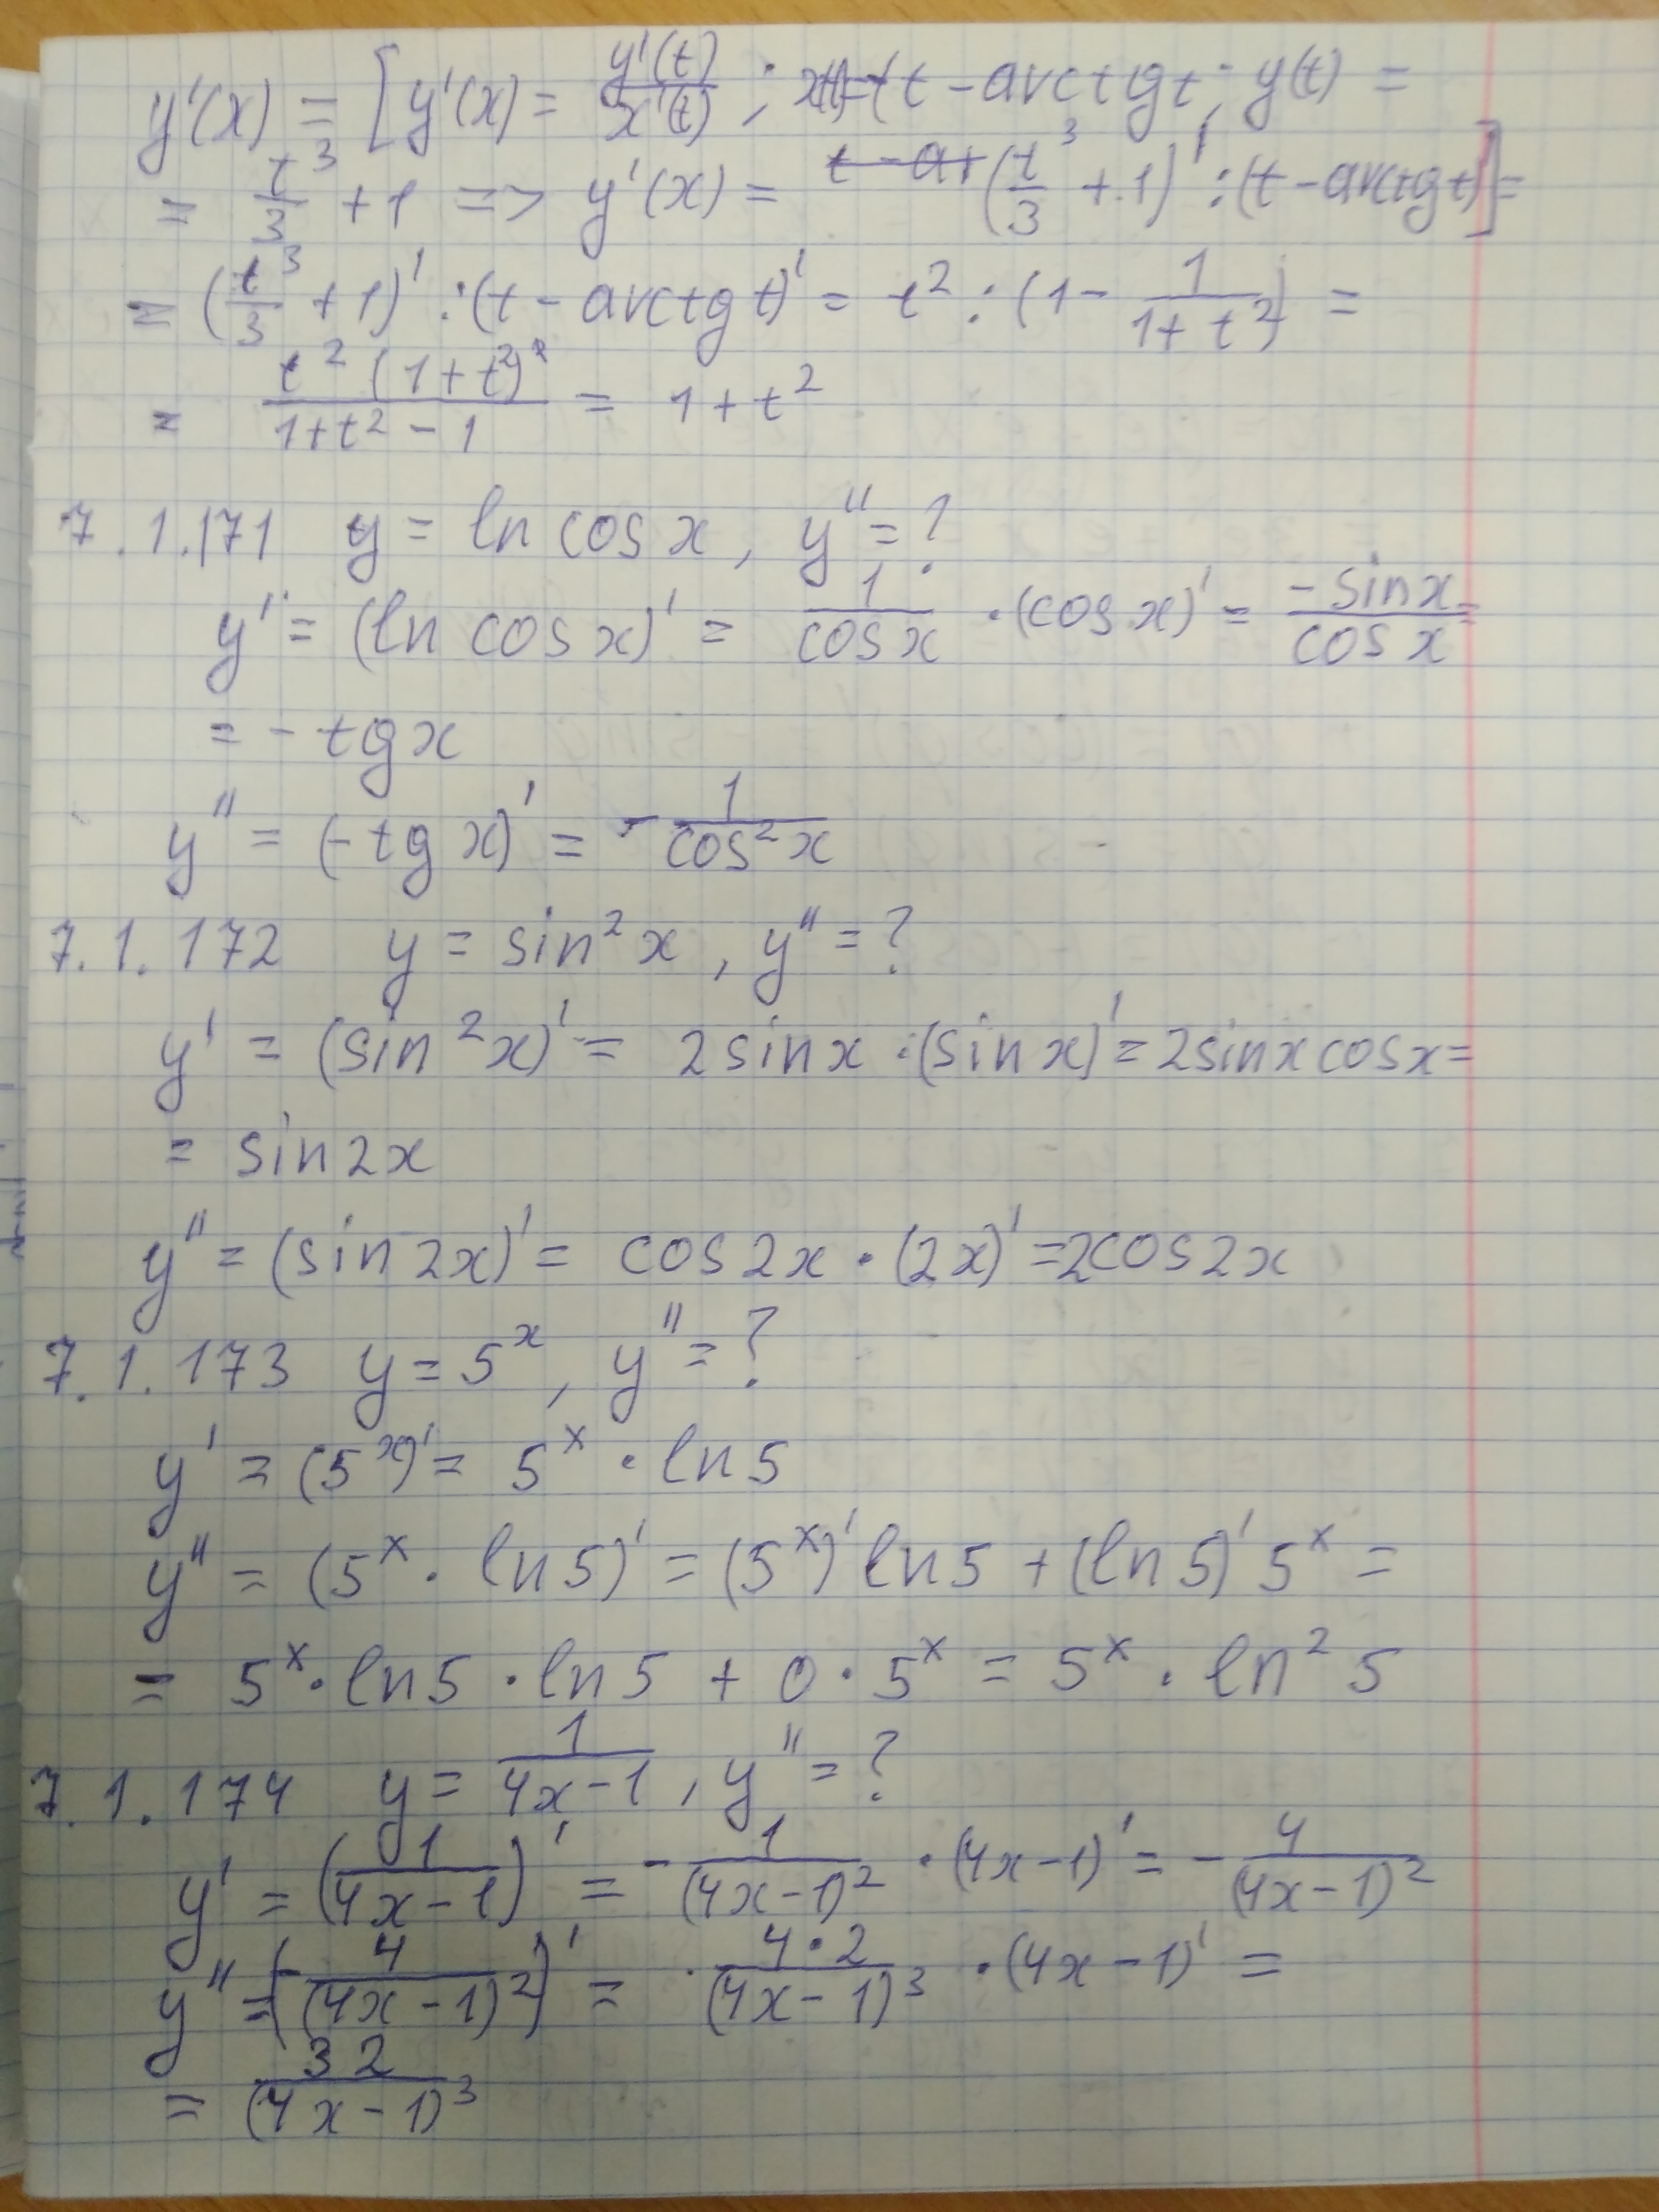 y'(x) = [y'(x) = y'(t)/x'(t) ; x(t) = t - arctg t; y(t) =
= t³/3 + 1 => y'(x) = (t³/3 + 1)' : (t - arctg t)'] =
= (t³/3 + 1)' : (t - arctg t)' = t² : (1 - 1/(1 + t²)) =
= t²(1+t²)/(1+t² - 1) = 1 + t²
7.1.171 y = ln cos x, y'' = ?
y' = (ln cos x)' = 1/cos x · (cos x)' = -sin x/cos x =
= - tg x
y'' = (- tg x)' = - 1/cos² x
7.1.172 y = sin² x, y'' = ?
y' = (sin² x)' = 2 sin x · (sin x)' = 2 sin x cos x =
= sin 2x
y'' = (sin 2x)' = cos 2x · (2x)' = 2cos 2x
7.1.173 y = 5ˣ, y'' = ?
y' = (5ˣ)' = 5ˣ · ln 5
y'' = (5ˣ · ln 5)' = (5ˣ)' ln 5 + (ln 5)' 5ˣ =
= 5ˣ · ln 5 · ln 5 + 0 · 5ˣ = 5ˣ · ln² 5
7.1.174 y = 1/(4x - 1), y'' = ?
y' = (1/(4x - 1))' = - 1/(4x - 1)² · (4x - 1)' = - 4/(4x - 1)²
y'' = (- 4/(4x - 1)²)' = 4·2/(4x - 1)³ · (4x - 1)' =
= 32/(4x - 1)³